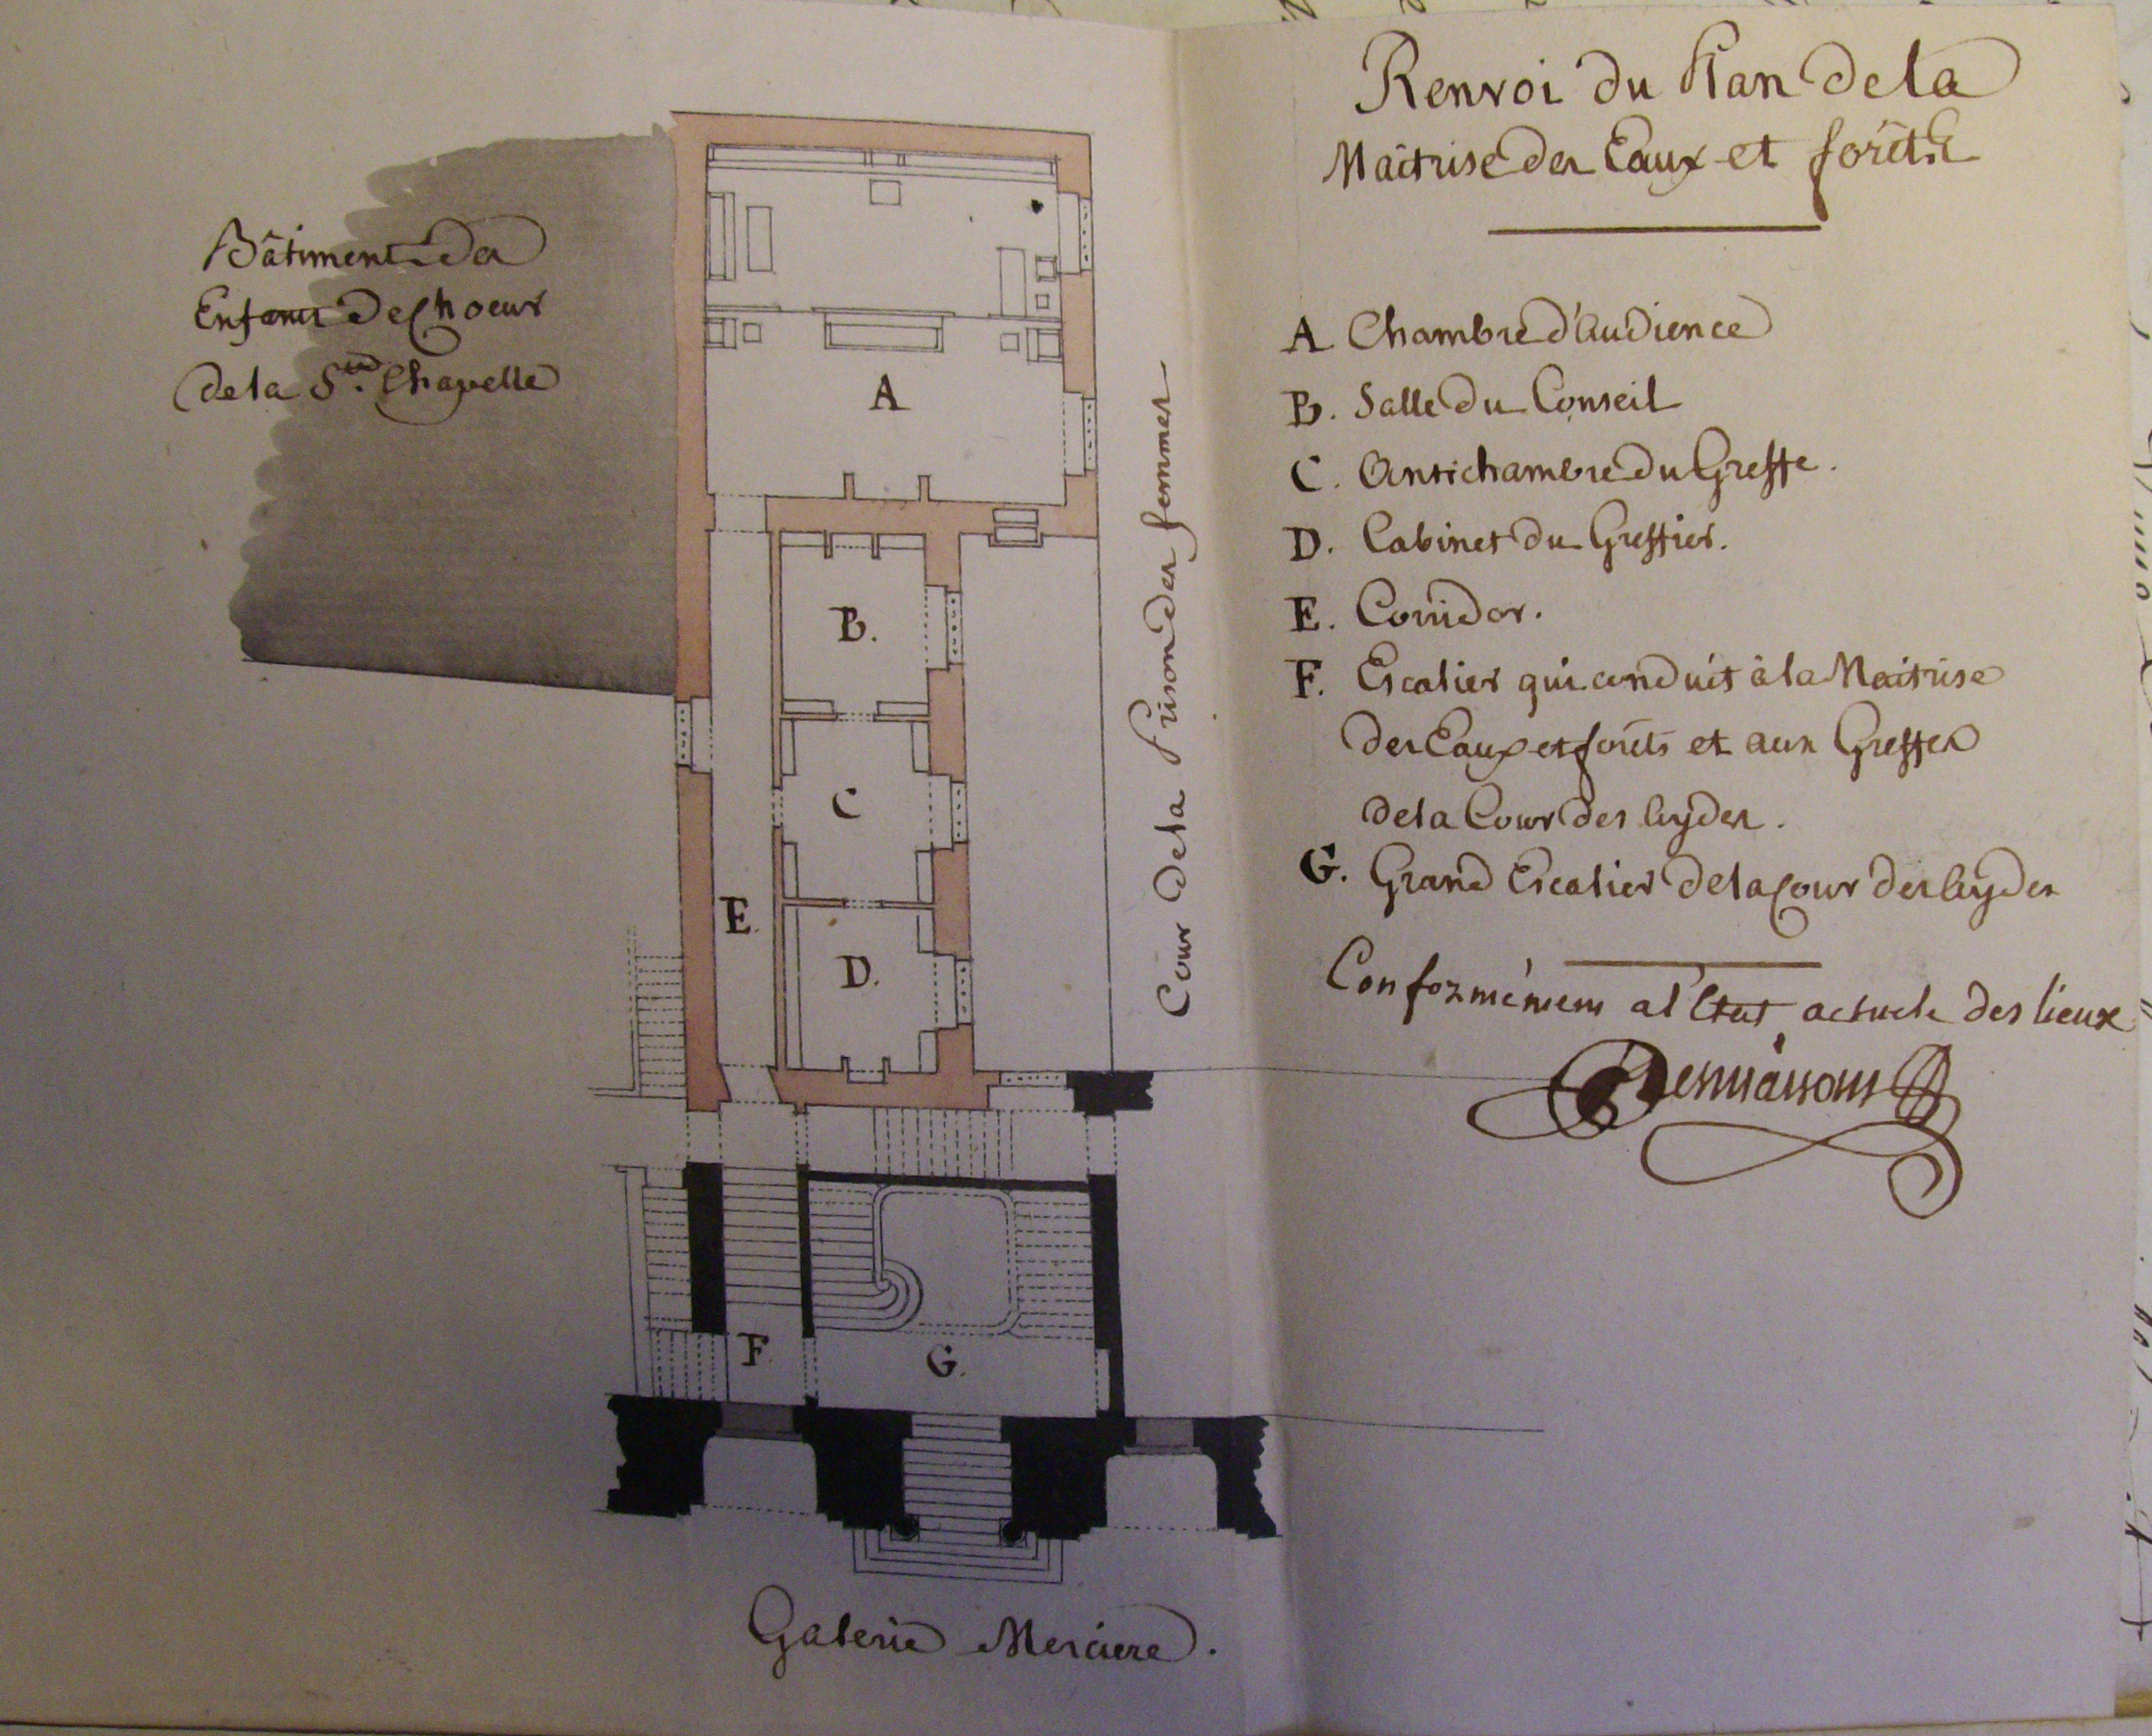 Renvoi du Plan de la
Maîtrise des Eaux et forêts
A Chambre d'audience
B. Salle du Conseil
C. Antichambre du Greffe.
D. Cabinet du Greffier.
E. Corridor.
F. Escalier qui conduit à la Maitrise
des Eaux et forêts et aux Greffes
de la Cour des Aydes.
G. Grand Escalier de la Cour des Aydes
Conformément a l'Etat actuele des lieux
Desmaisons
Bâtiment des
Enfants de Choeur
de la Ste. Chapelle
A
B.
C
D.
E.
F.
G.
Cour de la Prison des femmes
Galerie Merciere.